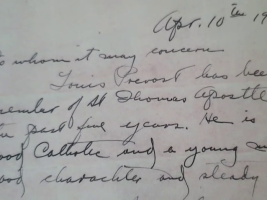 Apr. 10th 19
o whom it may concern
Louis Prevost has bee
member of St Thomas Apostle
past five years. He is
ood Catholic and a young m
ood charachter and steady